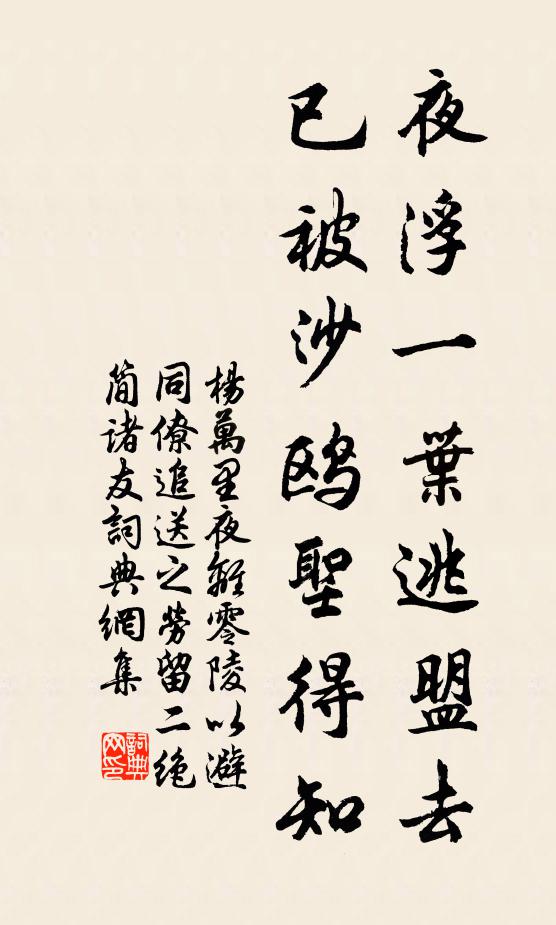 夜浮一葉逃盟去
已被沙鸥聖得知
楊萬里夜離零陵以避
同僚追送之勞留二絶
簡諸友詞典網集
詞典
网印